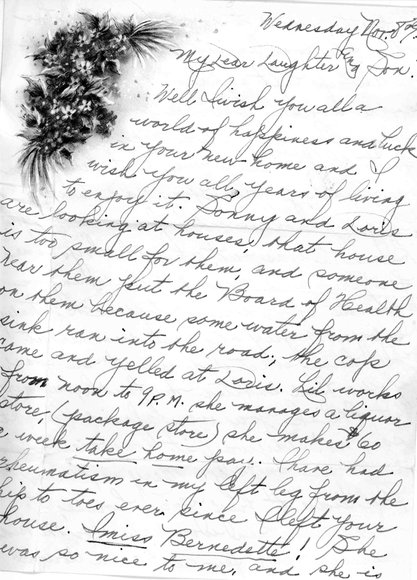 Wednesday Nov. 8
My Dear Daughter and Son
Well I wish you all a
world of happiness and luck
in your new home and I
wish you all years of living
to enjoy it. Sonny and Doris
are looking at houses, that house
is too small for them, and someone
near them put the Board of Health
on them because some water from the
sink ran into the road, the cops
came and yelled at Doris. Lil works
from noon to 9 P.M. she manages a liquor
store, (package store) she makes $60
a week take home pay. I have had
rheumatism in my left leg from the
hip to toes ever since I left your
house. I miss Bernedette! She
was so nice to me, and she is